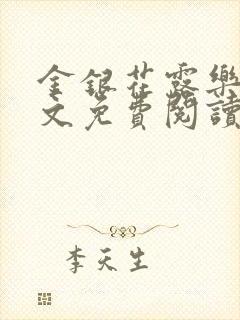 金銀花露樂
文免費閱讀
李天生